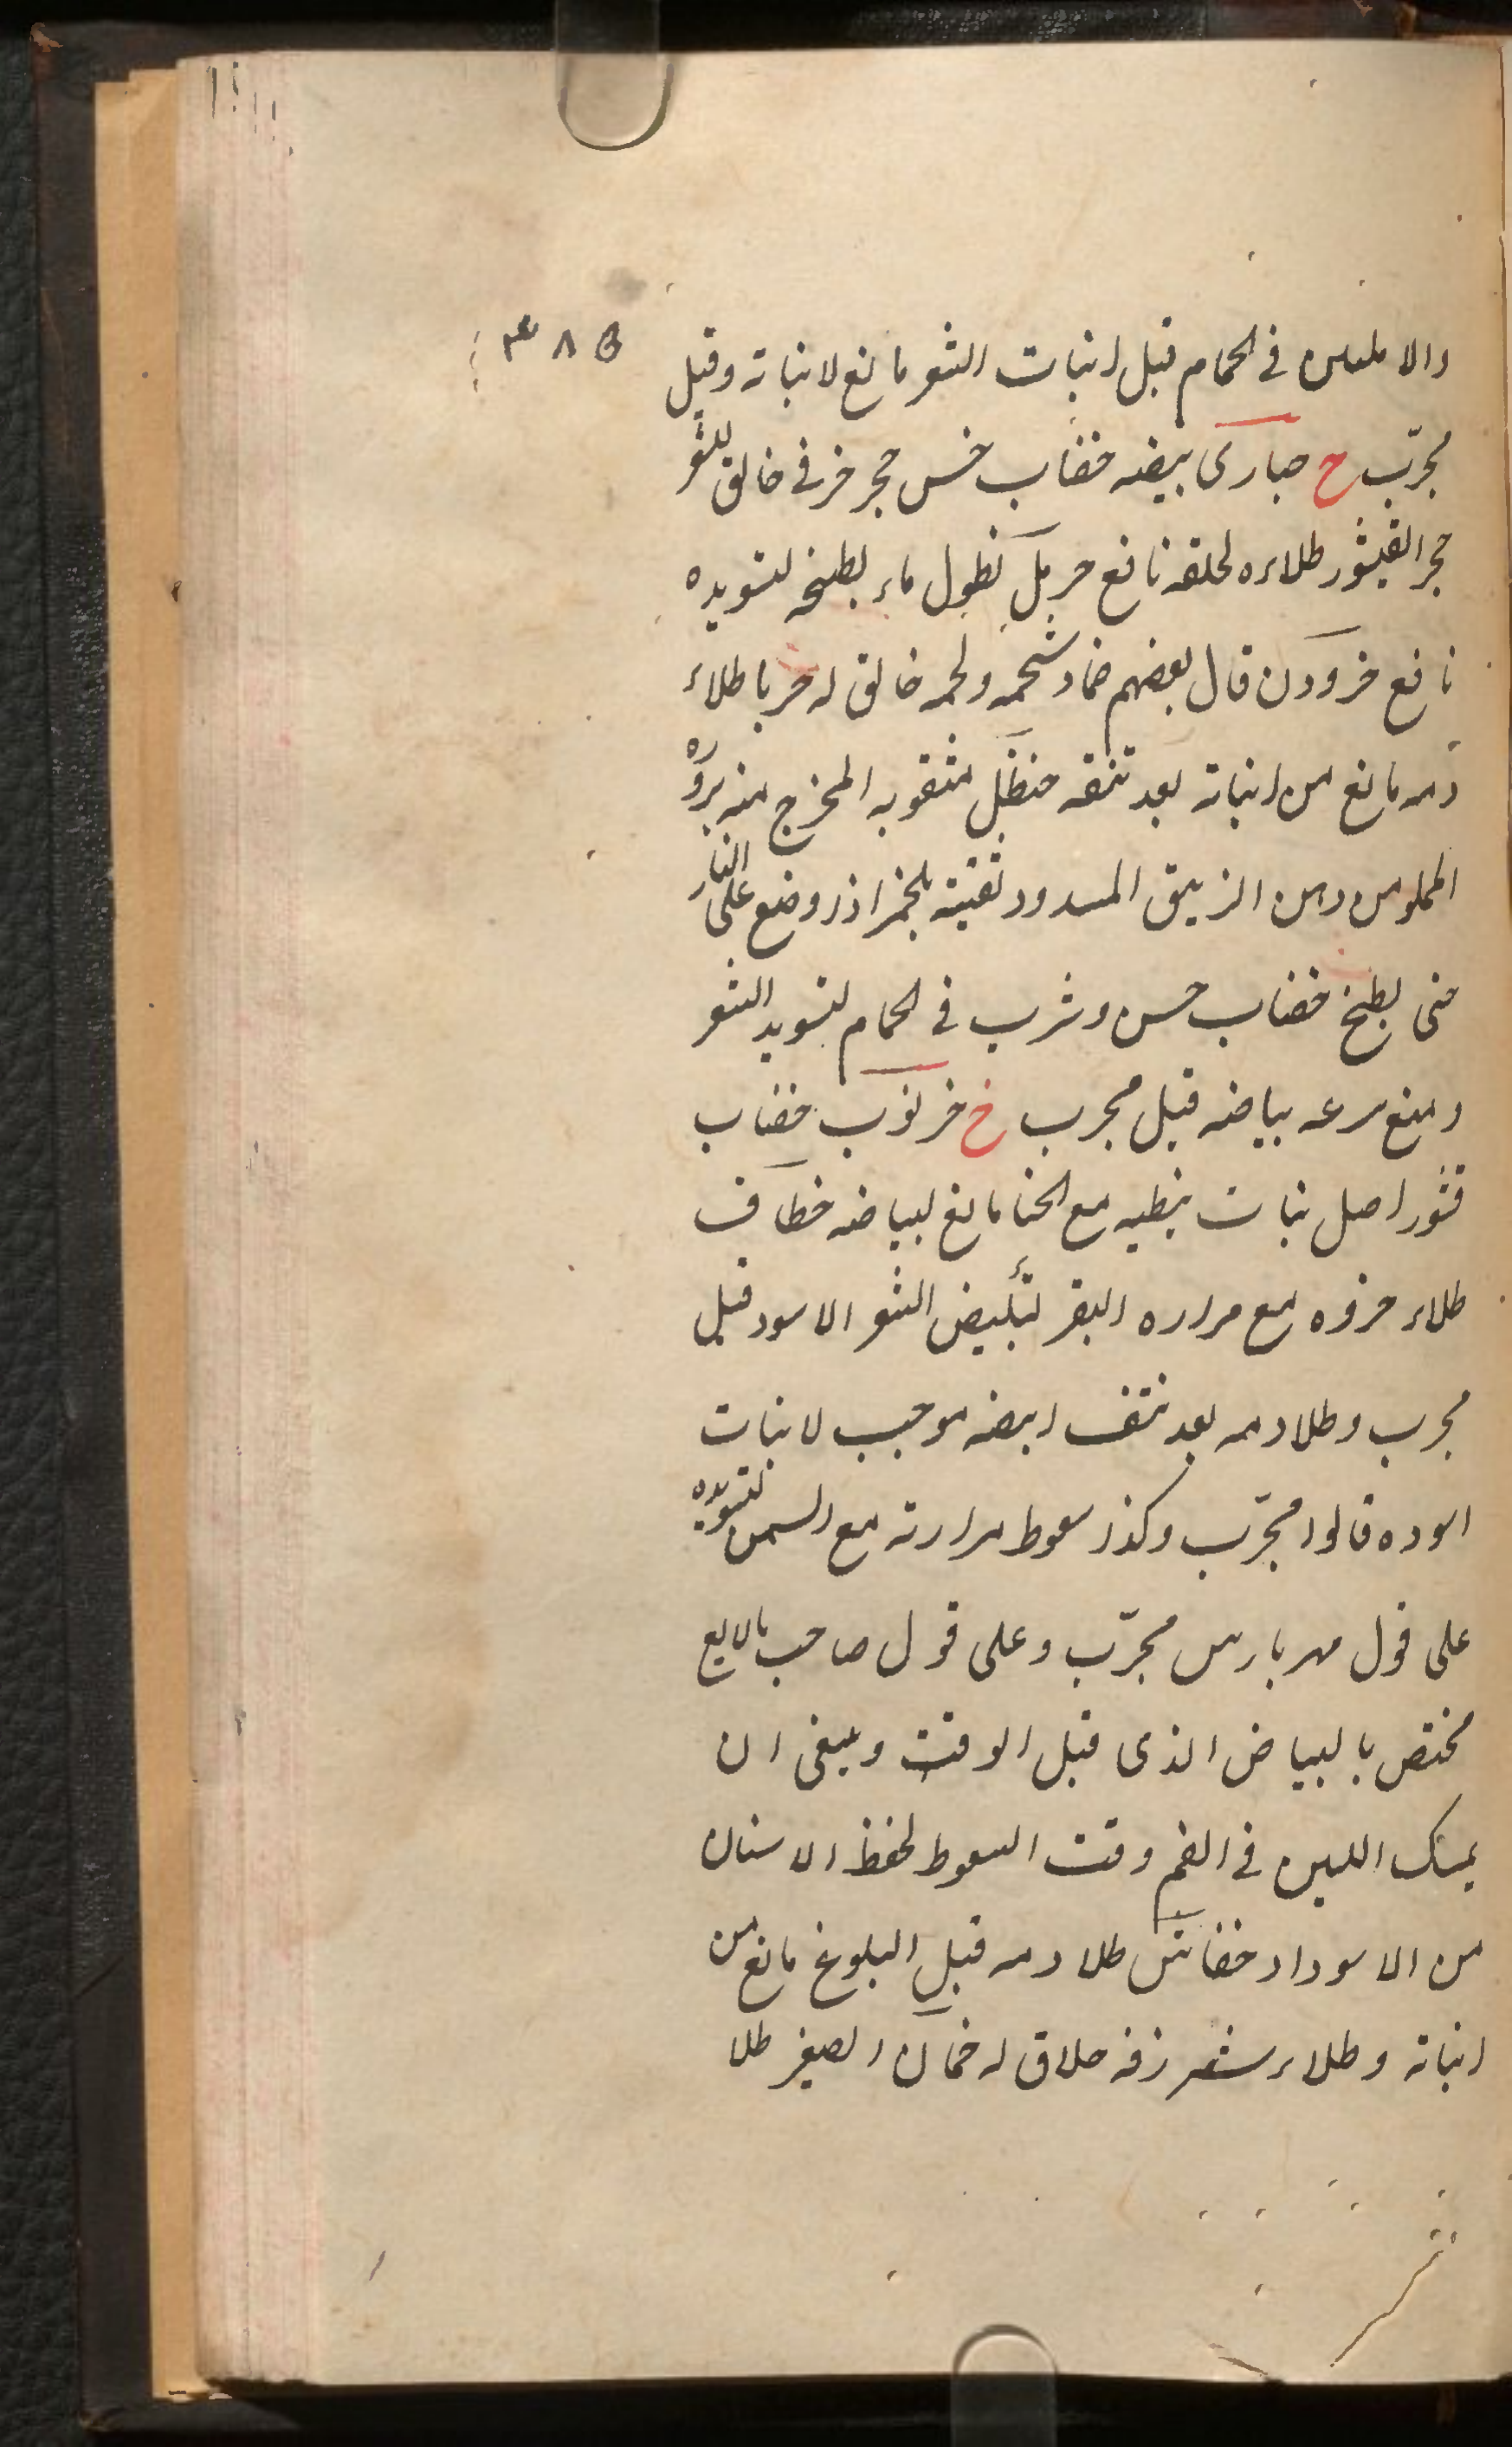 ٣٨٥
والاملس فى الحمام قبل انبات الشعر مانع لانباته وقيل
مجرّب ح حبارى بيضه خضاب حسن حجر خزفى حالق للشعر
حجر القيشور طلاءه لحلقه نافع حرمل نطول ماء بطبخ لتسويده
نافع حردون قال بعضهم ضماد شحمه ولحمه حالق له حربا طلاء
دمه مانع من انباته بعد نتفه حنظل مثقوبه المخرج منه بزره
المملو من دهن الزيبق المسدود ثقبته بخمير اذا وضع على النار
حتى بطبخ خضاب حسن وشرب فى الحمام لتسويد الشعر
ومنع سرعه بياضه قيل مجرب خ خرنوب خضاب
قشور اصل نبات نبطيه مع الحنا مانع لبياضه خطاف
طلاء خروه مع مراره البقر لتبييض الشعر الاسود قيل
مجرب وطلا دمه بعد نتف ابيضه موجب لانبات
اسوده قالوا مجرّب وكذا سعوط مرارته مع السمن لتسويده
على قول مهربارس مجرّب وعلى قول صاحب مالايع
مختص بالبياض الذى قبل الوقت وينبغى ان
يمسك اللبن فى الفم وقت السعوط لحفظ الاسنان
من الاسوداد خفاش طلا دمه قبل البلوغ مانع من
انباته وطلاء حلاق له خمان الصغير طلا